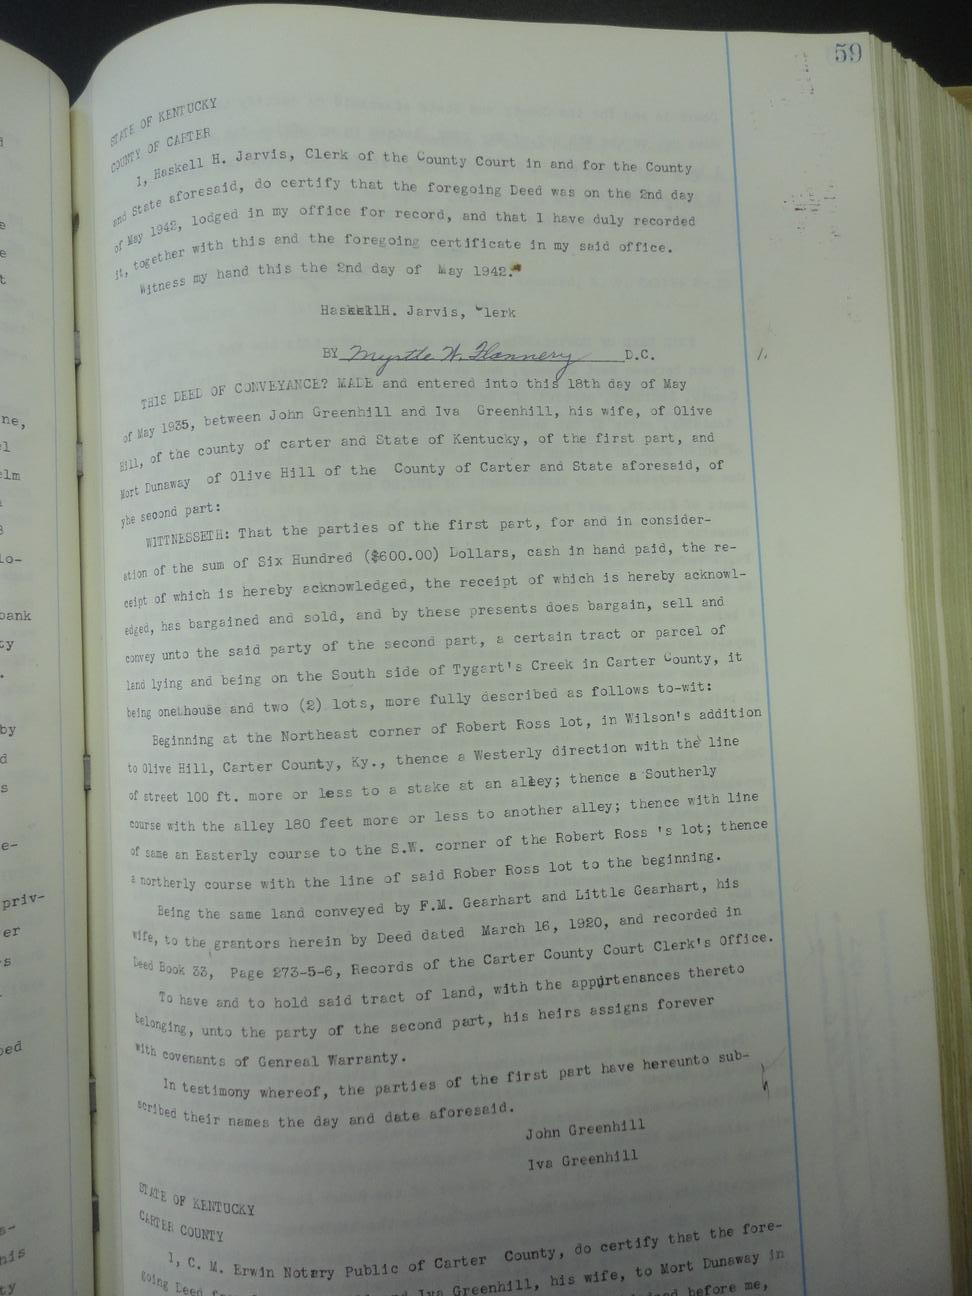 59
STATE OF KENTUCKY
COUNTY OF CARTER
I, Haskell H. Jarvis, Clerk of the County Court in and for the County
and State aforesaid, do certify that the foregoing Deed was on the 2nd day
of May 1942, lodged in my office for record, and that I have duly recorded
it, together with this and the foregoing certificate in my said office.
Witness my hand this the 2nd day of May 1942.
HaskellH. Jarvis, Clerk
BY Myrtle W. Flannery D.C.
THIS DEED OF CONVEYANCE? MADE and entered into this 18th day of May
of May 1935, between John Greenhill and Iva Greenhill, his wife, of Olive
Hill, of the county of carter and State of Kentucky, of the first part, and
Mort Dunaway of Olive Hill of the County of Carter and State aforesaid, of
yhe second part:
WITTNESSETH: That the parties of the first part, for and in consider-
ation of the sum of Six Hundred ($600.00) Dollars, cash in hand paid, the re-
ceipt of which is hereby acknowledged, the receipt of which is hereby acknowl-
edged, has bargained and sold, and by these presents does bargain, sell and
convey unto the said party of the second part, a certain tract or parcel of
land lying and being on the South side of Tygart's Creek in Carter County, it
being one house and two (2) lots, more fully described as follows to-wit:
Beginning at the Northeast corner of Robert Ross lot, in Wilson's addition
to Olive Hill, Carter County, Ky., thence a Westerly direction with the line
of street 100 ft. more or less to a stake at an alley; thence a Southerly
course with the alley 180 feet more or less to another alley; thence with line
of same an Easterly course to the S.W. corner of the Robert Ross 's lot; thence
a northerly course with the line of said Rober Ross lot to the beginning.
Being the same land conveyed by F.M. Gearhart and Little Gearhart, his
wife, to the grantors herein by Deed dated March 16, 1920, and recorded in
Deed Book 33, Page 273-5-6, Records of the Carter County Court Clerk's Office.
To have and to hold said tract of land, with the appurtenances thereto
belonging, unto the party of the second part, his heirs assigns forever
with covenants of Genreal Warranty.
In testimony whereof, the parties of the first part have hereunto sub-
scribed their names the day and date aforesaid.
John Greenhill
Iva Greenhill
STATE OF KENTUCKY
CARTER COUNTY
I, C. M. Erwin Notary Public of Carter County, do certify that the fore-
going Deed Iva Greenhill, his wife, to Mort Dunaway in
before me,